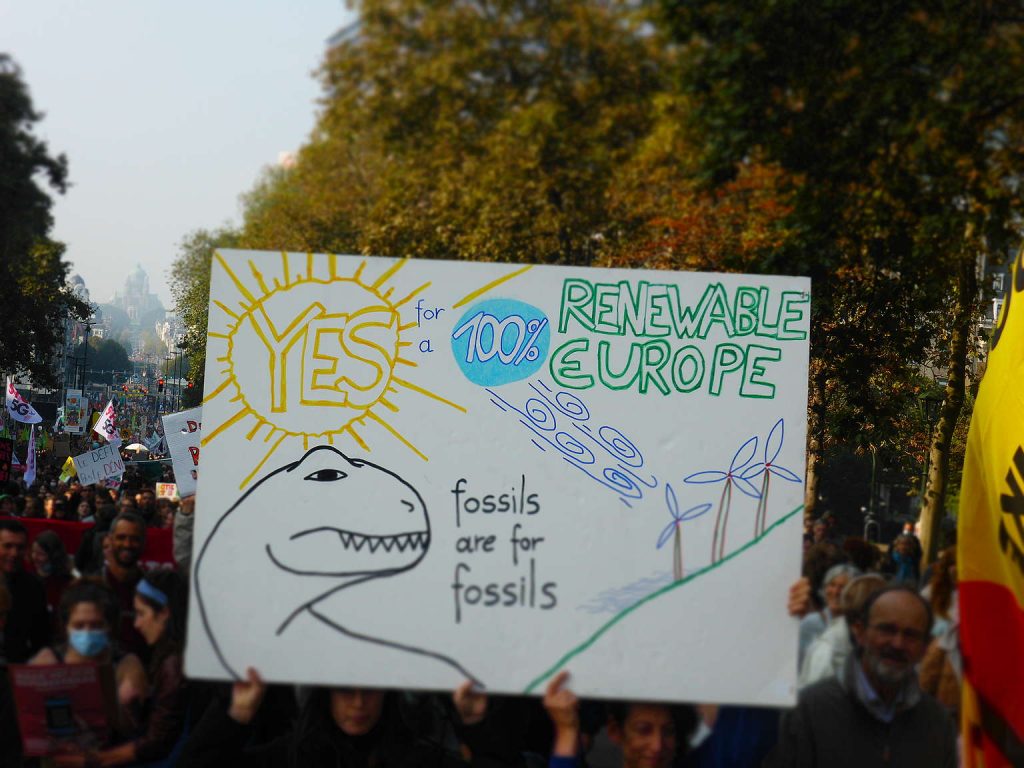 YES
for
a
100%
RENEWABLE
EUROPE
fossils
are for
fossils
LE DÉFI